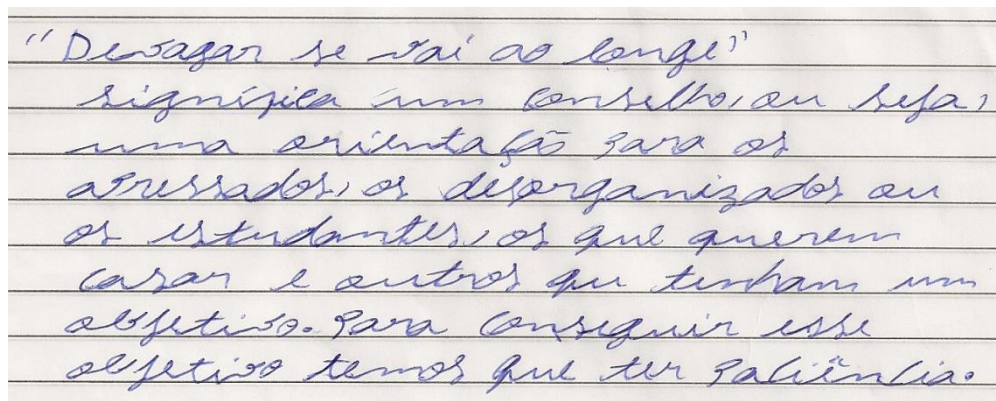 "Devagar se vai ao longe"
significa um conselho, ou seja,
uma orientação para os
apressados, os desorganizados ou
os estudantes, os que querem
casar e outros que tenham um
objetivo. Para conseguir esse
objetivo temos que ter paciência.